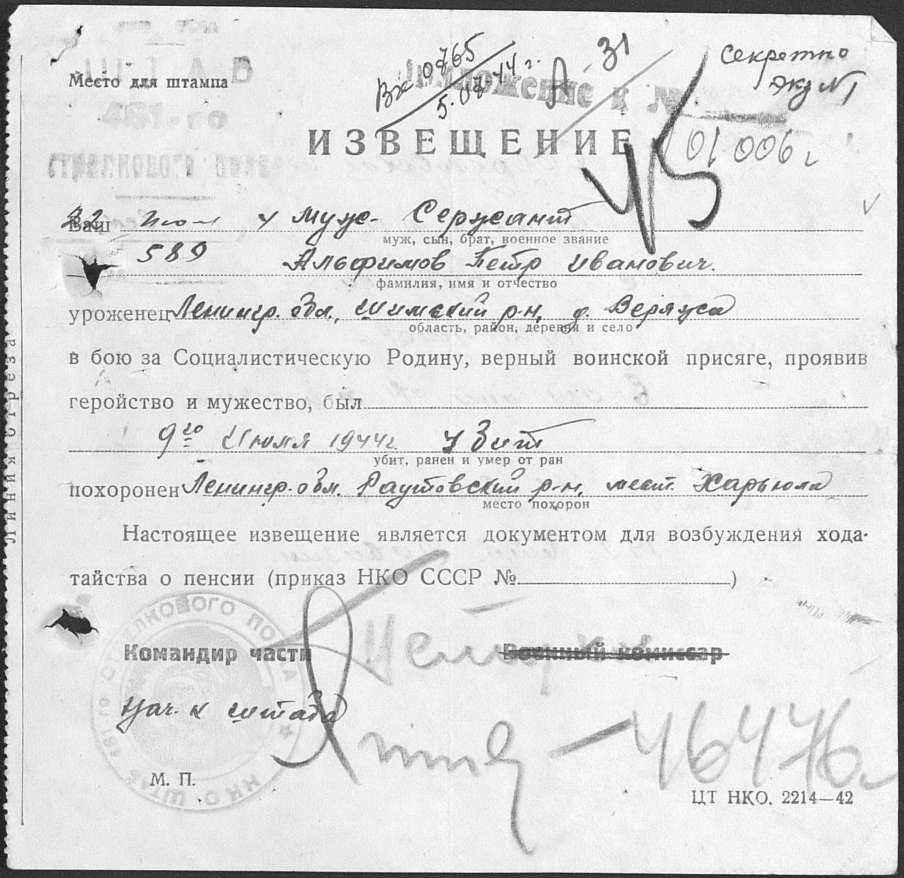 Место для штампа
ШТАБ
461-го
Вх 0765
5.07.44 г.
Приложение к №
31
Секретно
Экз №1
ИЗВЕЩЕНИЕ
45
01006 г
Ваш муж- Сержант
муж, сын, брат, военное звание
589 Альфимов Петр Иванович.
фамилия, имя и отчество
уроженец Ленингр. обл., Шимский р-н, д.
область, район, деревня и село
в бою за Социалистическую Родину, верный воинской присяге, проявив
геройство и мужество, был
9го Июля 1944г. убит
убит, ранен и умер от ран
похоронен Ленингр. обл. Раутовский р-н, мест. Харьюла
место похорон
Настоящее извещение является документом для возбуждения хода-
тайства о пенсии (приказ НКО СССР № )
Командир части
Военный комиссар
Нач. штаба
М. П.
ЦТ НКО. 2214—42
46476
Линия отреза
СТРЕЛКОВОГО ПОЛКА
НКО